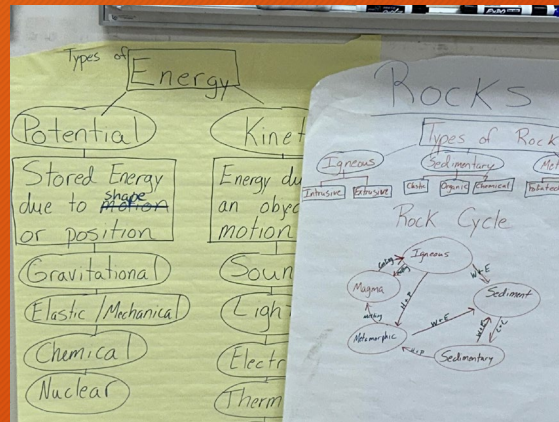 Types of Energy
Potential
Stored Energy
due to shape
or position
Gravitational
Elastic/Mechanical
Chemical
Nuclear
Kinet
Energy du
an objec
motion
Soun
Ligh
Electr
Therm
Rocks
Types of Rock
Igneous
Intrusive Extrusive
Sedimentary
Clastic Organic Chemical
Met
Rock Cycle
Igneous
Magma
Metamorphic
Sediment
Sedimentary
Cooling
melting
melting
H+P
W+E
W+E
W+E
C+C
H+P
EXPO